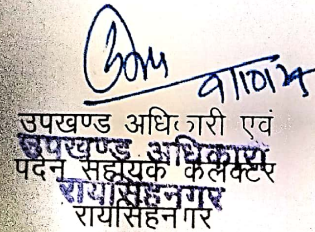 9/10/24
उपखण्ड अधिकारी एवं
उपखण्ड अधिकारी
पदेन सहायक कलेक्टर
रायसिंहनगर
रायसिंहनगर